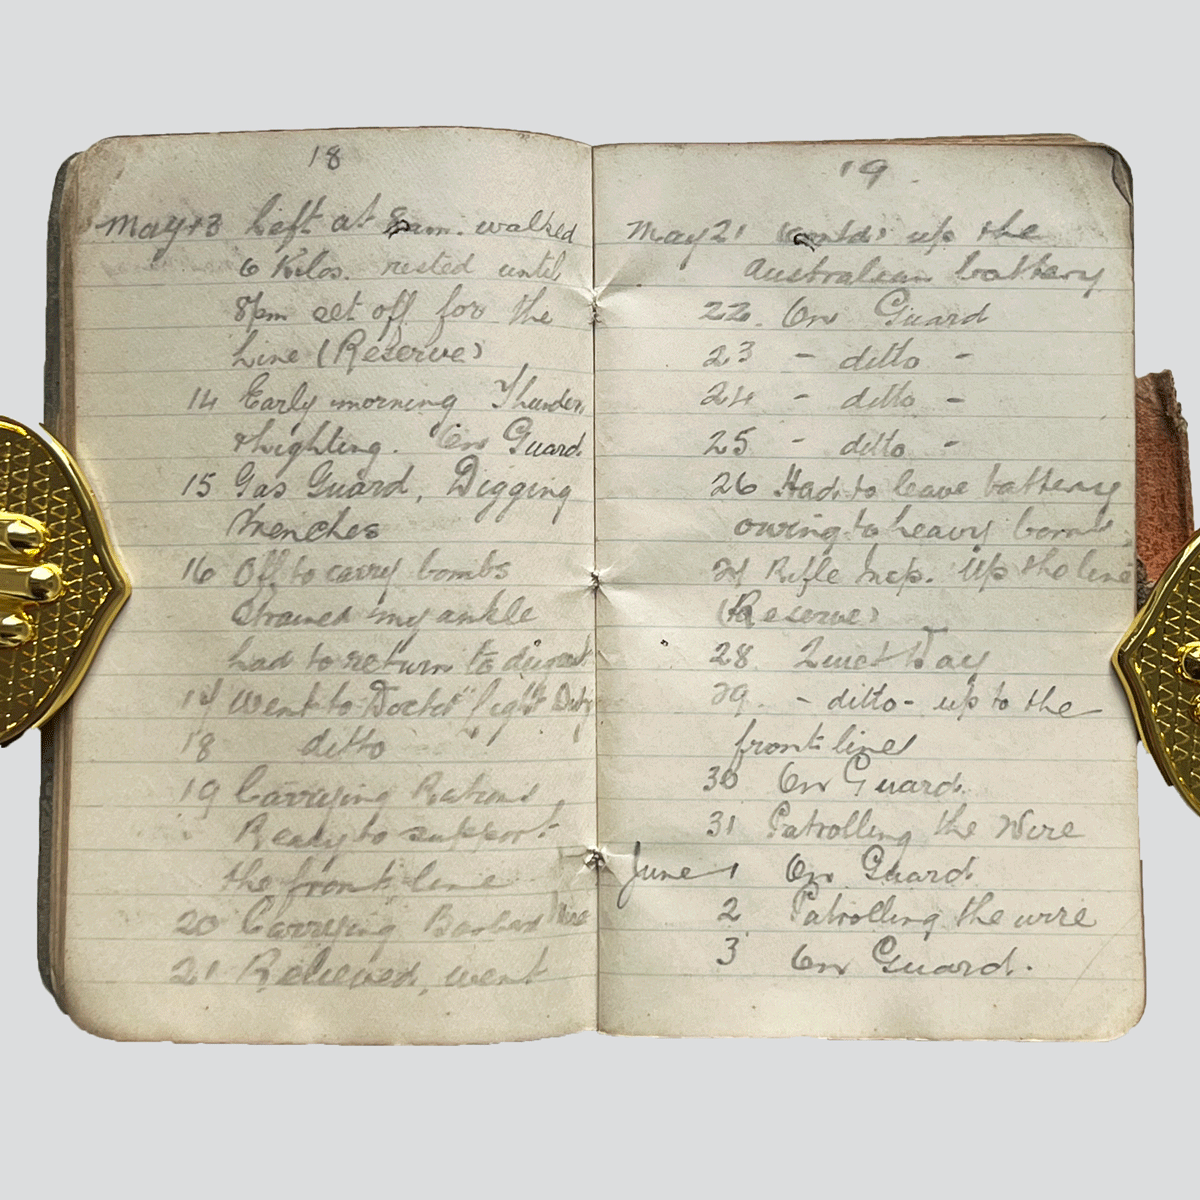 18
May 13 Left at 8am. walked
6 Kilos. rested until
8pm set off for the
Line (Reserve)
14 Early morning Thunder
& Lighting. On Guard
15 Gas Guard, Digging
trenches
16 Off to carry bombs
Strained my ankle
had to return to dugout
17 Went to Doctor light Duty
18 ditto
19 Carrying Rations
Ready to support
the front line
20 Carrying Barbed Wire
21 Relieved, went
19
May 21 up the
Australian battery
22. On Guard
23 - ditto -
24 - ditto -
25 - ditto -
26 Had to leave battery
owing to heavy bomb
27 Rifle Insp. Up the line
(Reserve)
28 Quiet Day
29. - ditto - up to the
front line
30 On Guard.
31 Patrolling the Wire
June 1 On Guard
2 Patrolling the wire
3 On Guard.